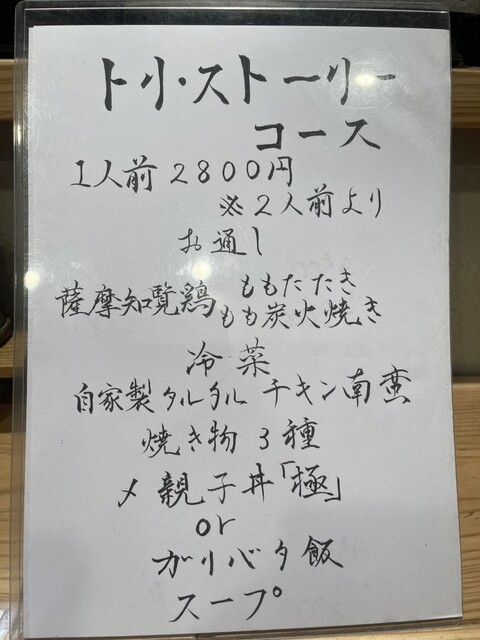 トリ・ストーリー
コース
1人前2800円
※2人前より
お通し
薩摩知覧鶏 ももたたき
もも炭火焼き
冷菜
自家製タルタル チキン南蛮
焼き物 3種
〆 親子丼「極」
or
ガリバタ飯
スープ